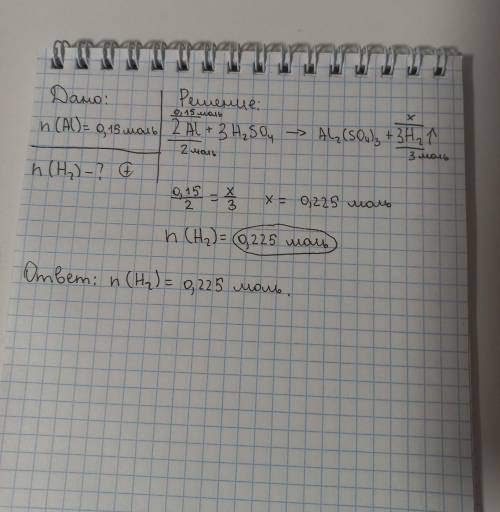 Дано:
n(Al)= 0,15 моль
n(H₂)-?
Решение:
0,15 моль x
2Al + 3H₂SO₄ → Al₂(SO₄)₃ + 3H₂↑
2 моль 3 моль
0,15/2 = x/3 x = 0,225 моль
n(H₂)= 0,225 моль
Ответ: n(H₂)= 0,225 моль.